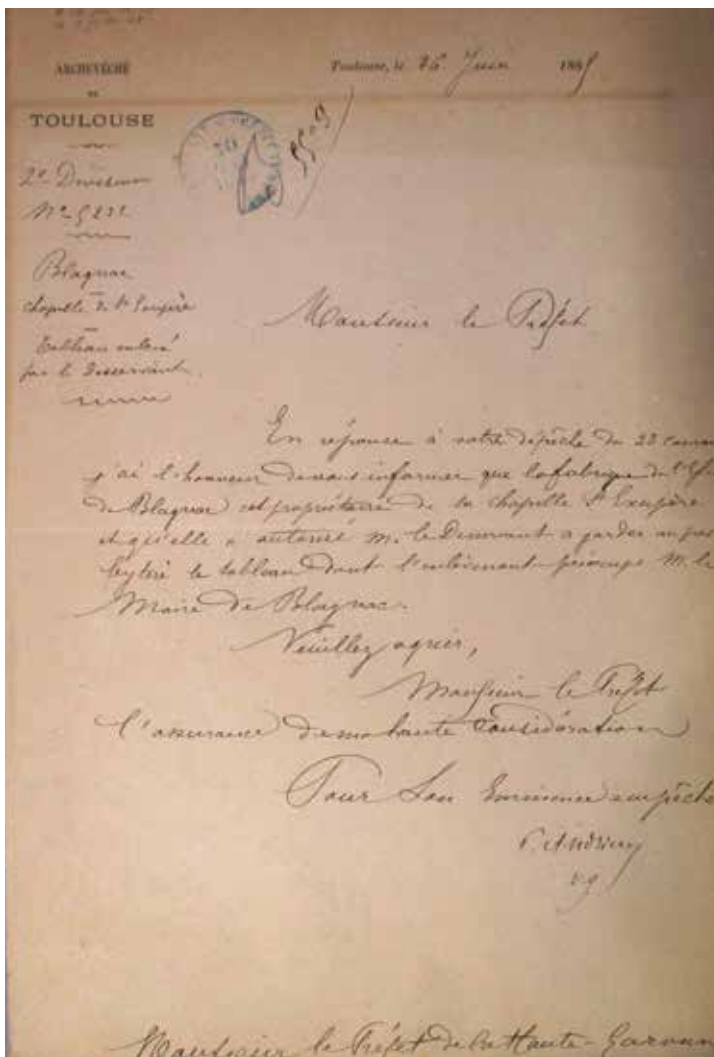 ARCHEVÊCHÉ
DE
TOULOUSE
Toulouse, le 26 Juin 188
2e Division
No
Blagnac
chapelle de St Exupère
Tableau enlevé
par le Desservant.
Monsieur le Préfet
En réponse à votre dépêche du 23 couran
j'ai l'honneur de vous informer que la fabrique de l'Egl
de Blagnac est propriétaire de la chapelle St Exupère
et qu'elle a autorisé M. le Desservant a garder au pres
bytère le tableau dont l'enlèvement préoccupe M. le
Maire de Blagnac.
Veuillez agréer,
Monsieur le Préfet
l'assurance de ma haute considération
Pour Son Eminence empêché
P. Andrieu
v.g.
Monsieur le Préfet de la Haute-Garonn